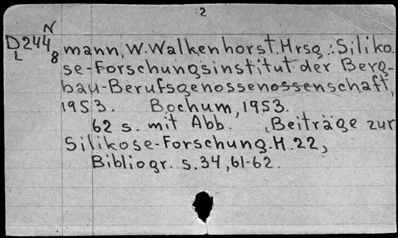 2
N
D244 mann, W. Walkenhorst. Hrsg.: Siliko
L 8 se-Forschungsinstitut der Berg-
bau-Berufsgenossenossenschaft,
1953. Bochum, 1953.
62 s. mit Abb. (Beiträge zur
Silikose-Forschung. H. 22,
Bibliogr. s. 34, 61-62.